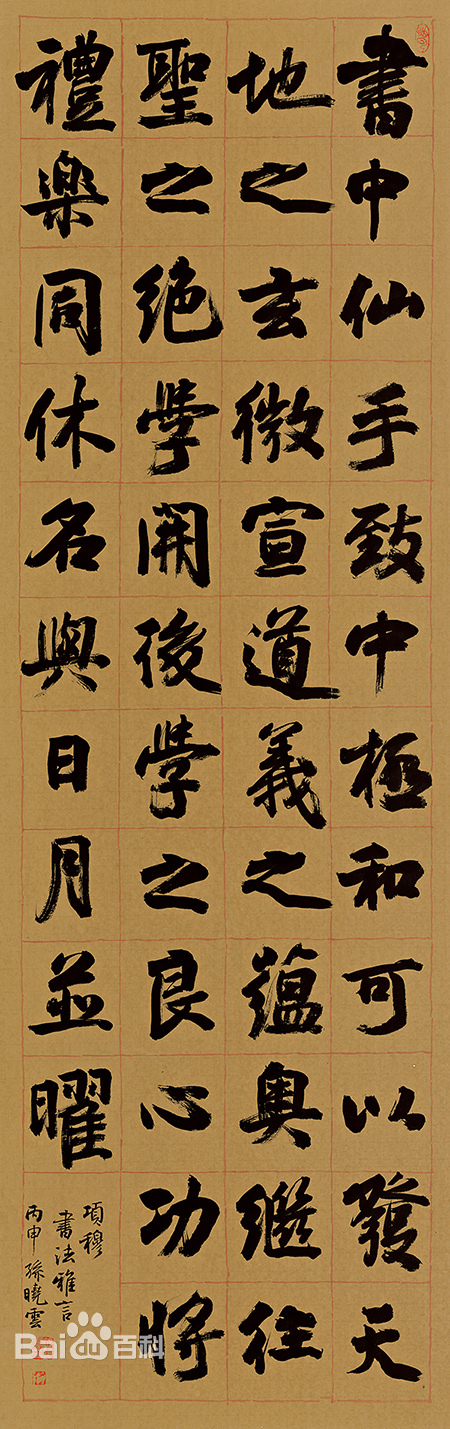 書中仙手致中極和可以發天
地之玄微宣道義之蘊奧繼往
聖之絕學開後學之良心功將
禮樂同休名與日月並曜
項穆
書法雅言
丙申孫曉雲
Bai百科